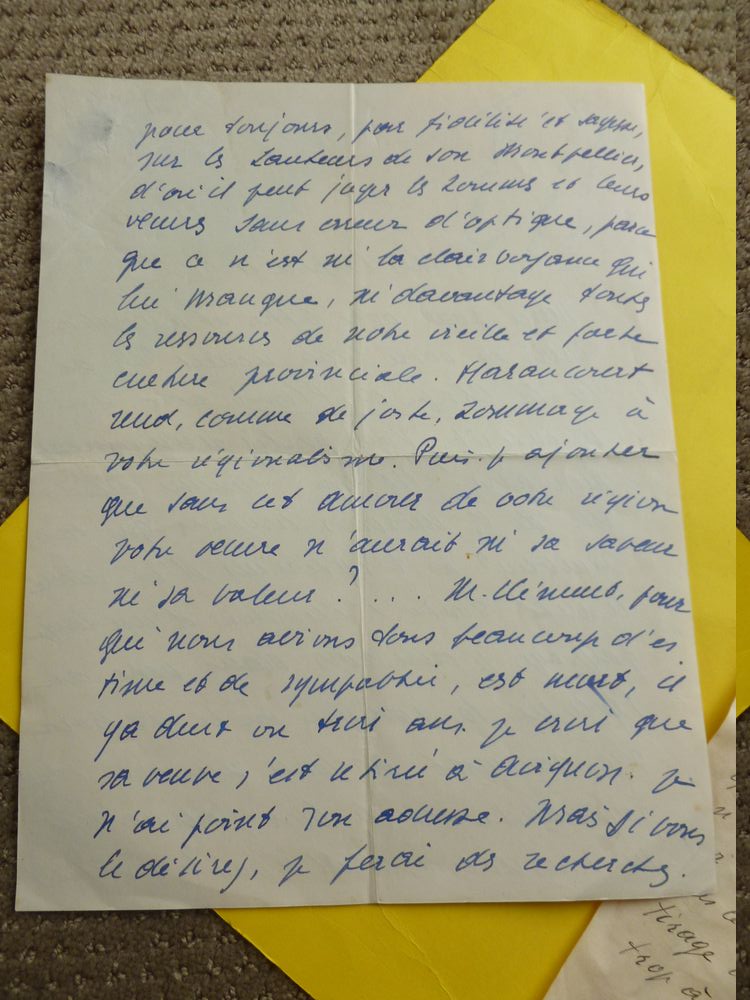 pour toujours, par fidélité et sagesse,
sur les hauteurs de son Montpellier,
d'où il peut juger les hommes et leurs
œuvres sans erreur d'optique, parce
que ce n'est ni la clairvoyance qui
lui manque, ni davantage toutes
les ressources de notre vieille et forte
culture provinciale. Haraucourt
rend, comme de juste, hommage à
votre régionalisme. Puis-je ajouter
que sans cet amour de votre région
votre œuvre n'aurait ni sa saveur
ni sa valeur ?... M. Clément, pour
qui nous avions tous beaucoup d'es
time et de sympathie, est mort, il
y a deux ou trois ans. Je crois que
sa veuve s'est retirée à Avignon. Je
n'ai point son adresse. Mais si vous
le désirez, je ferai des recherches.
tirage
trop à